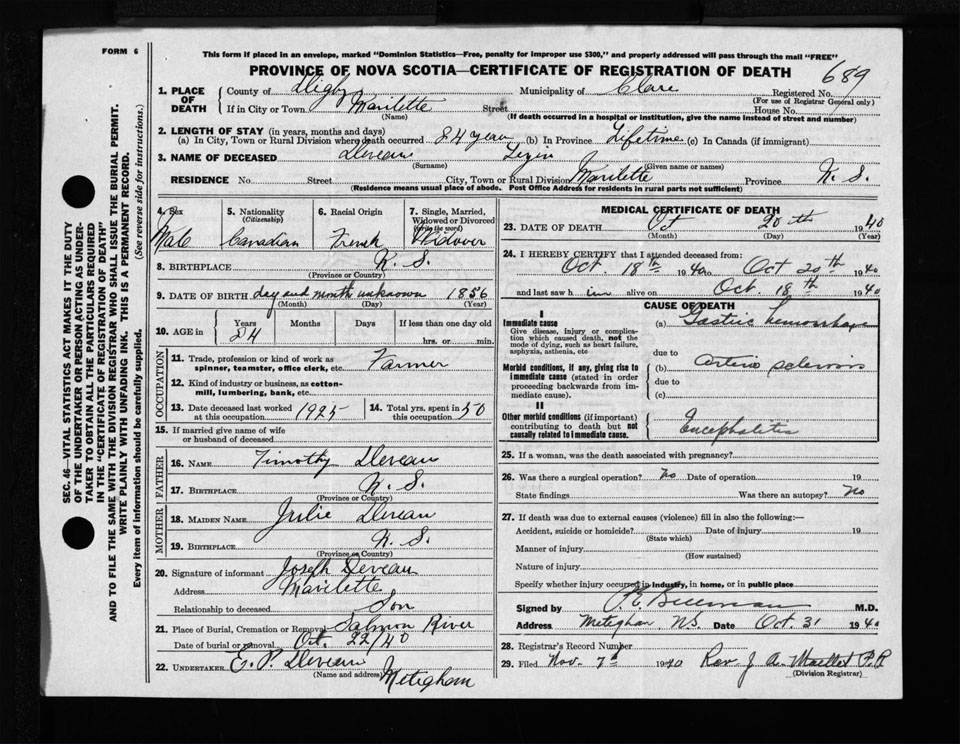 FORM 6
This form if placed in an envelope, marked "Dominion Statistics—Free, penalty for improper use $300," and properly addressed will pass through the mail "FREE"
PROVINCE OF NOVA SCOTIA—CERTIFICATE OF REGISTRATION OF DEATH
689
SEC. 46—VITAL STATISTICS ACT MAKES IT THE DUTY
OF THE UNDERTAKER OR PERSON ACTING AS UNDER-
TAKER TO OBTAIN ALL THE PARTICULARS REQUIRED
IN THE "CERTIFICATE OF REGISTRATION OF DEATH"
AND TO FILE THE SAME WITH THE DIVISION REGISTRAR WHO SHALL ISSUE THE BURIAL PERMIT.
WRITE PLAINLY WITH UNFADING INK. THIS IS A PERMANENT RECORD.
Every item of information should be carefully supplied. (See reverse side for instructions.)
1. PLACE OF DEATH
County of Digby Municipality of Clare Registered No.
(For use of Registrar General only)
If in City or Town Street House No.
(Name) (If death occurred in a hospital or institution, give the name instead of street and number)
2. LENGTH OF STAY (in years, months and days)
(a) In City, Town or Rural Division where death occurred 84 years (b) In Province Lifetime (c) In Canada (if immigrant)
3. NAME OF DECEASED Deveau
(Surname) (Given name or names)
RESIDENCE No. Street City, Town or Rural Division Province N. S.
(Residence means usual place of abode. Post Office Address for residents in rural parts not sufficient)
4. Sex Male
5. Nationality (Citizenship) Canadian
6. Racial Origin French
7. Single, Married, Widowed or Divorced (write the word) Widower
8. BIRTHPLACE N. S.
(Province or Country)
9. DATE OF BIRTH day and month unknown 1856
(Month) (Day) (Year)
10. AGE in Years 84 Months Days If less than one day old
hrs. or min.
OCCUPATION
11. Trade, profession or kind of work as
spinner, teamster, office clerk, etc. Farmer
12. Kind of industry or business, as cotton-
mill, lumbering, bank, etc.
13. Date deceased last worked
at this occupation 1925
14. Total yrs. spent in
this occupation 50
15. If married give name of wife
or husband of deceased
FATHER
16. NAME Timothy Deveau
17. BIRTHPLACE N. S.
(Province or Country)
MOTHER
18. MAIDEN NAME Julie Deveau
19. BIRTHPLACE N. S.
(Province or Country)
20. Signature of informant Joseph Deveau
Address
Relationship to deceased Son
21. Place of Burial, Cremation or Removal Salmon River
Date of burial or removal Oct. 22/40
22. UNDERTAKER E. P. Deveau
(Name and address) Meteghan
MEDICAL CERTIFICATE OF DEATH
23. DATE OF DEATH Oct 20th 1940
(Month) (Day) (Year)
24. I HEREBY CERTIFY that I attended deceased from:
Oct. 18th 1940 to Oct 20th 1940
and last saw him alive on Oct. 18th 1940
CAUSE OF DEATH
I
Immediate cause
Give disease, injury or complica-
tion which caused death, not the
mode of dying, such as heart failure,
asphyxia, asthenia, etc
(a) Gastric hemorrhage
due to
Morbid conditions, if any, giving rise to
immediate cause (stated in order
proceeding backwards from im-
mediate cause).
(b) Arterio sclerosis
due to
(c)
II
Other morbid conditions (if important)
contributing to death but not
causally related to immediate cause.
Encephalitis
25. If a woman, was the death associated with pregnancy?
26. Was there a surgical operation? No Date of operation 19
State findings Was there an autopsy? No
27. If death was due to external causes (violence) fill in also the following:—
Accident, suicide or homicide? Date of injury 19
(State which)
Manner of injury
(How sustained)
Nature of injury
Specify whether injury occurred in industry, in home, or in public place
Signed by M.D.
Address Meteghan, N.S. Date Oct. 31 1940
28. Registrar's Record Number
29. Filed Nov. 7th 1940 Rev. J. A. P.P.
(Division Registrar)